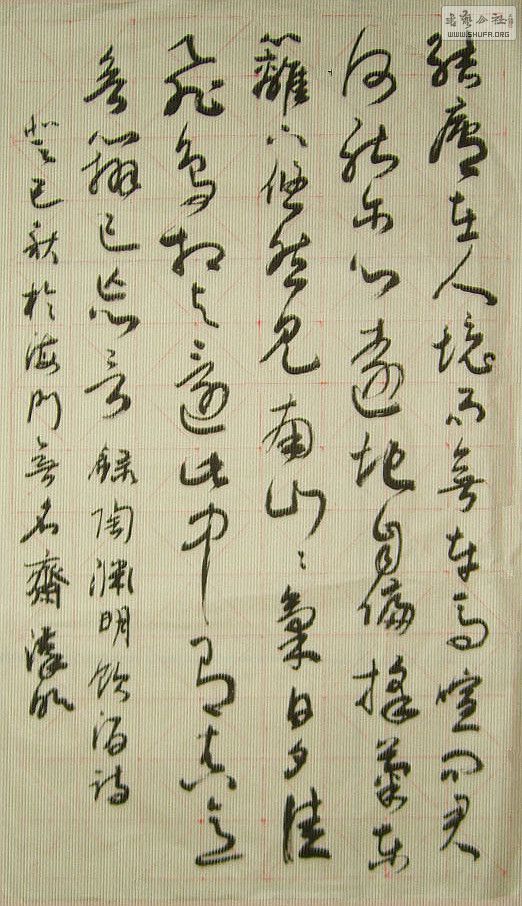 結廬在人境而無車馬喧問君
何能尔心遠地自偏採菊東
籬下悠然見南山〻氣日夕佳
飛鳥相與還此中有真意
欲辨已忘言 錄陶淵明飲酒詩
癸巳秋於海門無名齋
書藝公社
WWW.SHUFA.ORG